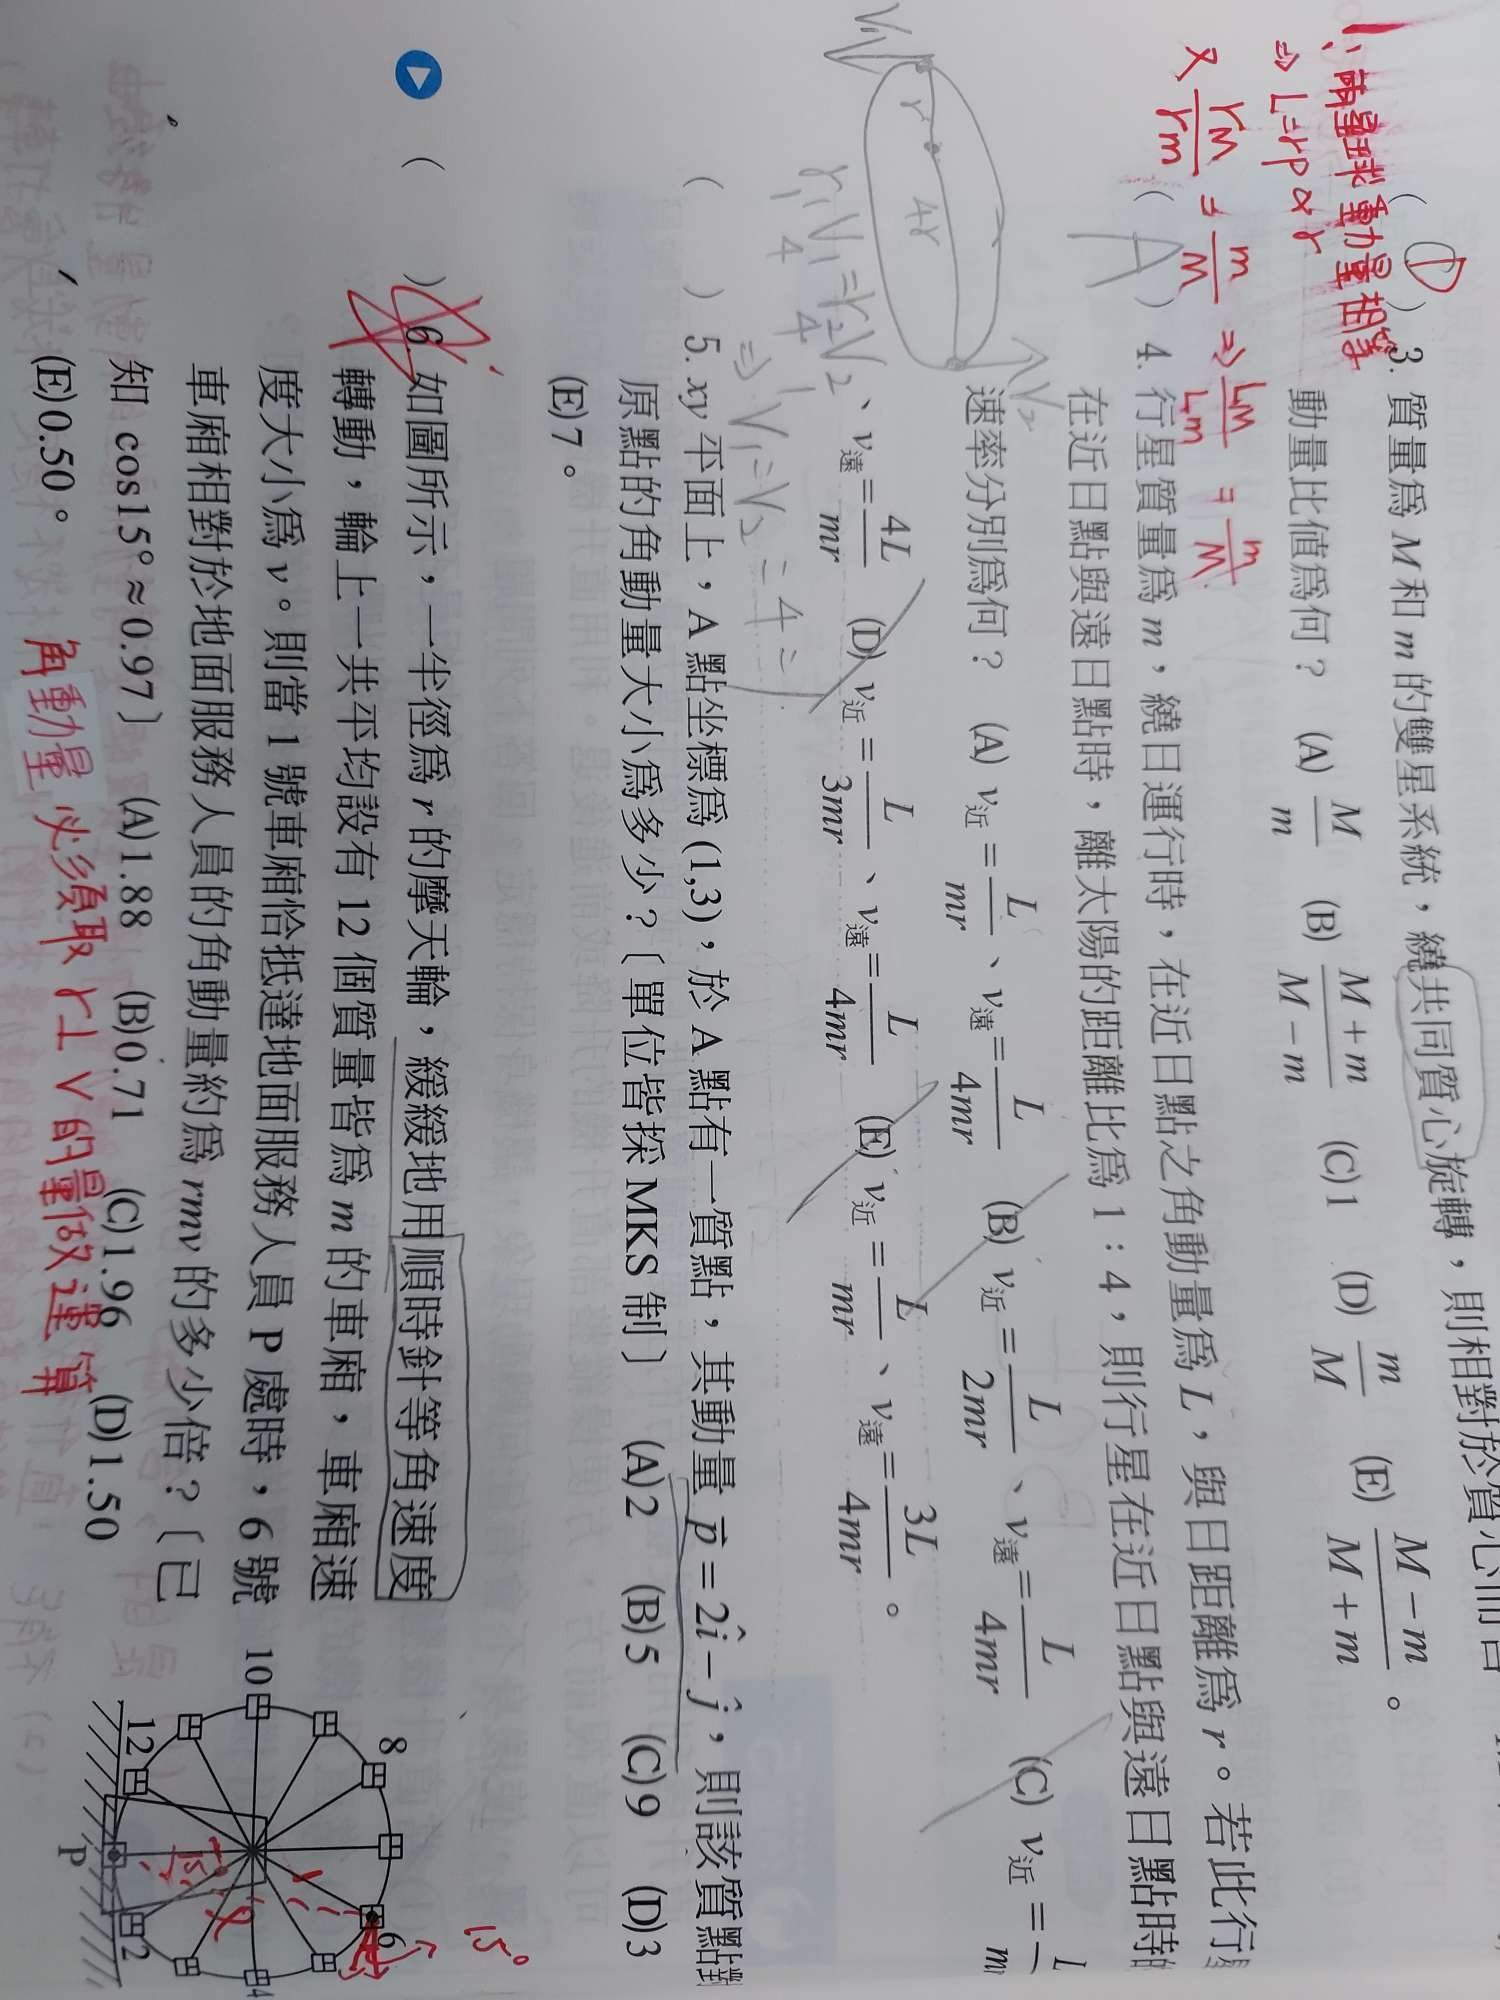 (D)3. 質量為 M 和 m 的雙星系統，繞共同質心旋轉，則相對於質心而言
動量比值為何？ (A) M/m (B) (M+m)/(M−m) (C) 1 (D) m/M (E) (M−m)/(M+m)。
兩星球動量相等
⇒ L=rp ∝ r
又 rM/rm = m/M ⇒ LM/Lm = m/M
(A)4. 行星質量為 m，繞日運行時，在近日點之角動量為 L，與日距離為 r。若此行
在近日點與遠日點時，離太陽的距離比為 1：4，則行星在近日點與遠日點時的
速率分別為何？ (A) v近=L/mr、v遠=L/4mr (B) v近=L/2mr、v遠=L/4mr (C) v近=L/m
、v遠=4L/mr (D) v近=L/3mr、v遠=L/4mr (E) v近=L/mr、v遠=3L/4mr。
V1
r
4r
V2
r1V1=r2V2
1 4
⇒ V1：V2 = 4：1
( )5. xy 平面上，A 點坐標為 (1,3)，於 A 點有一質點，其動量 p⃗ = 2î − ĵ，則該質點對
原點的角動量大小為多少？〔單位皆採 MKS 制〕 (A)2 (B)5 (C)9 (D)3
(E)7。
( )6. 如圖所示，一半徑為 r 的摩天輪，緩緩地用順時針等角速度
轉動，輪上一共平均設有 12 個質量皆為 m 的車廂，車廂速
度大小為 v。則當 1 號車廂恰抵達地面服務人員 P 處時，6 號
車廂相對於地面服務人員的角動量約為 rmv 的多少倍？〔已
知 cos15°≈0.97〕 (A)1.88 (B)0.71 (C)1.96 (D)1.50
(E)0.50。
角動量必須取 r⊥v 的量做運算
15°
8
10
6
12
4
2
P
15°
r